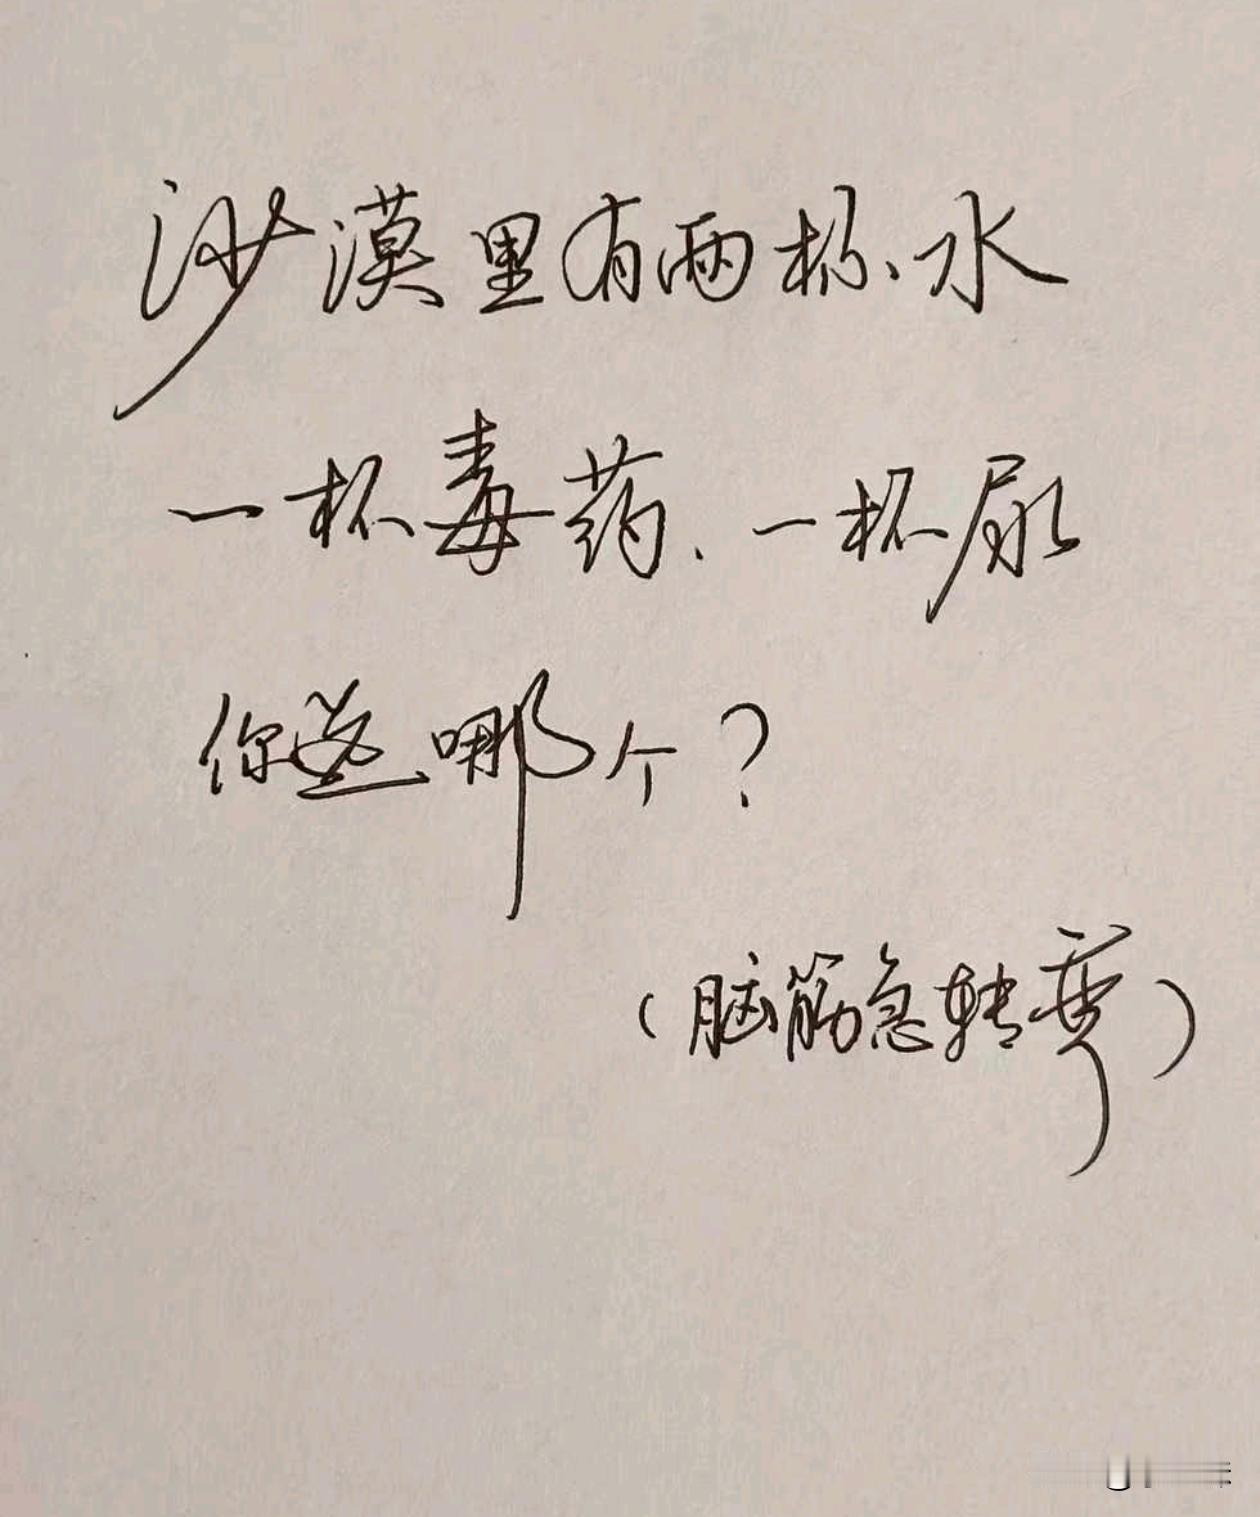 沙漠里有两杯水
一杯毒药、一杯尿
你选哪个?
(脑筋急转弯)